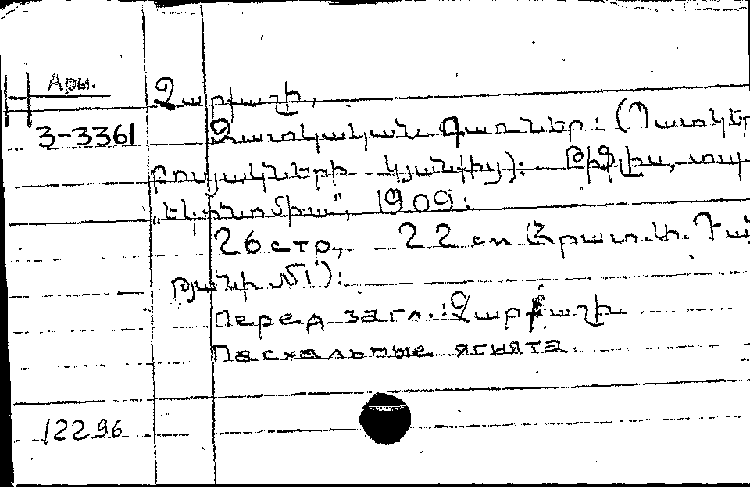 Арм.
3-3361
Զարիաղի,
Զատկական Գառներ: (Պատկեր
բույսկների կյանքից): Թիֆլիս, տպ
„Էկոնոմիա", 1909:
26 стр, 22 см (Հրատ.
№1):
Перед загл.: Զարիաղի
Пасхальные ягнята.
12296